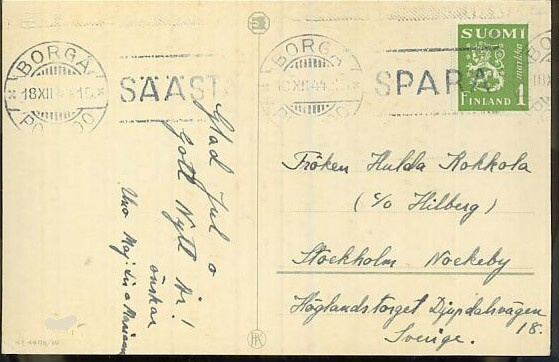 BORGÅ
18XII
PORVOO
SÄÄSTÄ
BORGÅ
XII 44
SPARA
SUOMI
markka
FINLAND 1
Glad Jul o
Gott Nytt År!
önskar
Uno Maj-Lis o Mariann
Fröken Hulda Kokkola
(c/o Hilberg)
Stockholm Nockeby
Höglandstorget Djupdalsvägen
18.
Sverige.